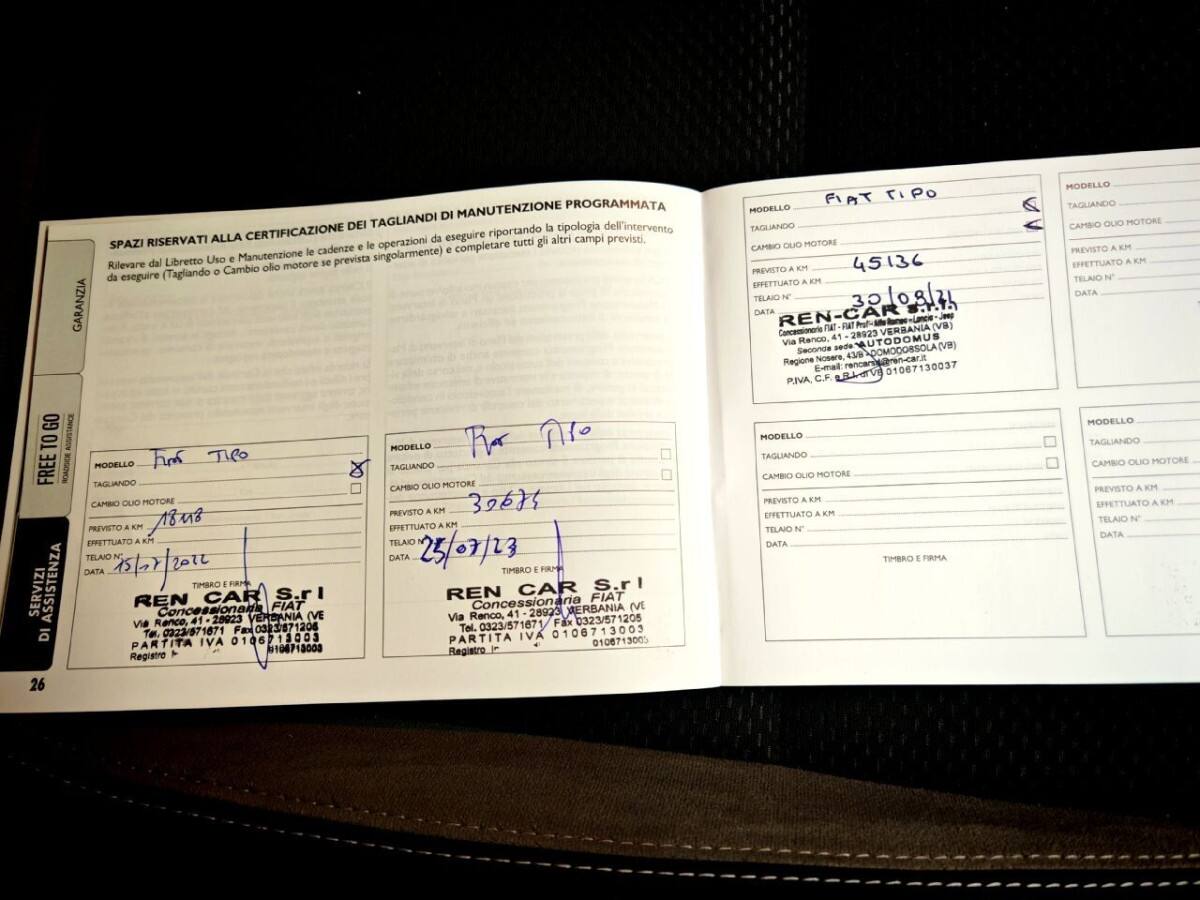 SPAZI RISERVATI ALLA CERTIFICAZIONE DEI TAGLIANDI DI MANUTENZIONE PROGRAMMATA
Rilevare dal Libretto Uso e Manutenzione le cadenze e le operazioni da eseguire riportando la tipologia dell'intervento
da eseguire (Tagliando o Cambio olio motore se prevista singolarmente) e completare tutti gli altri campi previsti.
GARANZIA
FREE TO GO
ROADSIDE ASSISTANCE
SERVIZI
DI ASSISTENZA
MODELLO Fiat TIPO
TAGLIANDO
CAMBIO OLIO MOTORE
PREVISTO A KM
EFFETTUATO A KM
TELAIO N°
DATA 15/07/2022
TIMBRO E FIRMA
REN CAR S.rl
Concessionaria FIAT
Via Renco, 41 - 28923 VERBANIA (VE
Tel. 0323/571671 Fax 0323/571205
PARTITA IVA 0106713003
Registro
0106713003
MODELLO Fiat TIPO
TAGLIANDO
CAMBIO OLIO MOTORE
PREVISTO A KM
EFFETTUATO A KM
TELAIO N°
DATA 25/07/23
TIMBRO E FIRMA
REN CAR S.rl
Concessionaria FIAT
Via Renco, 41 - 28923 VERBANIA (VE
Tel. 0323/571671 Fax 0323/571205
PARTITA IVA 0106713003
Registro
0106713003
26
MODELLO FIAT TIPO
TAGLIANDO
CAMBIO OLIO MOTORE
PREVISTO A KM 45136
EFFETTUATO A KM
TELAIO N°
DATA
REN-CAR S.r.l.
Concessionario FIAT - FIAT Prof - Alfa Romeo - Lancia - Jeep
Via Renco, 41 - 28923 VERBANIA (VB)
Seconda sede AUTODOMUS
Regione Nosere, 43/B - DOMODOSSOLA (VB)
E-mail: @ren-car.it
P.IVA, C.F. e R.I. di VB 01067130037
MODELLO
TAGLIANDO
CAMBIO OLIO MOTORE
PREVISTO A KM
EFFETTUATO A KM
TELAIO N°
DATA
MODELLO
TAGLIANDO
CAMBIO OLIO MOTORE
PREVISTO A KM
EFFETTUATO A KM
TELAIO N°
DATA
TIMBRO E FIRMA
MODELLO
TAGLIANDO
CAMBIO OLIO MOTORE
PREVISTO A KM
EFFETTUATO A KM
TELAIO N°
DATA